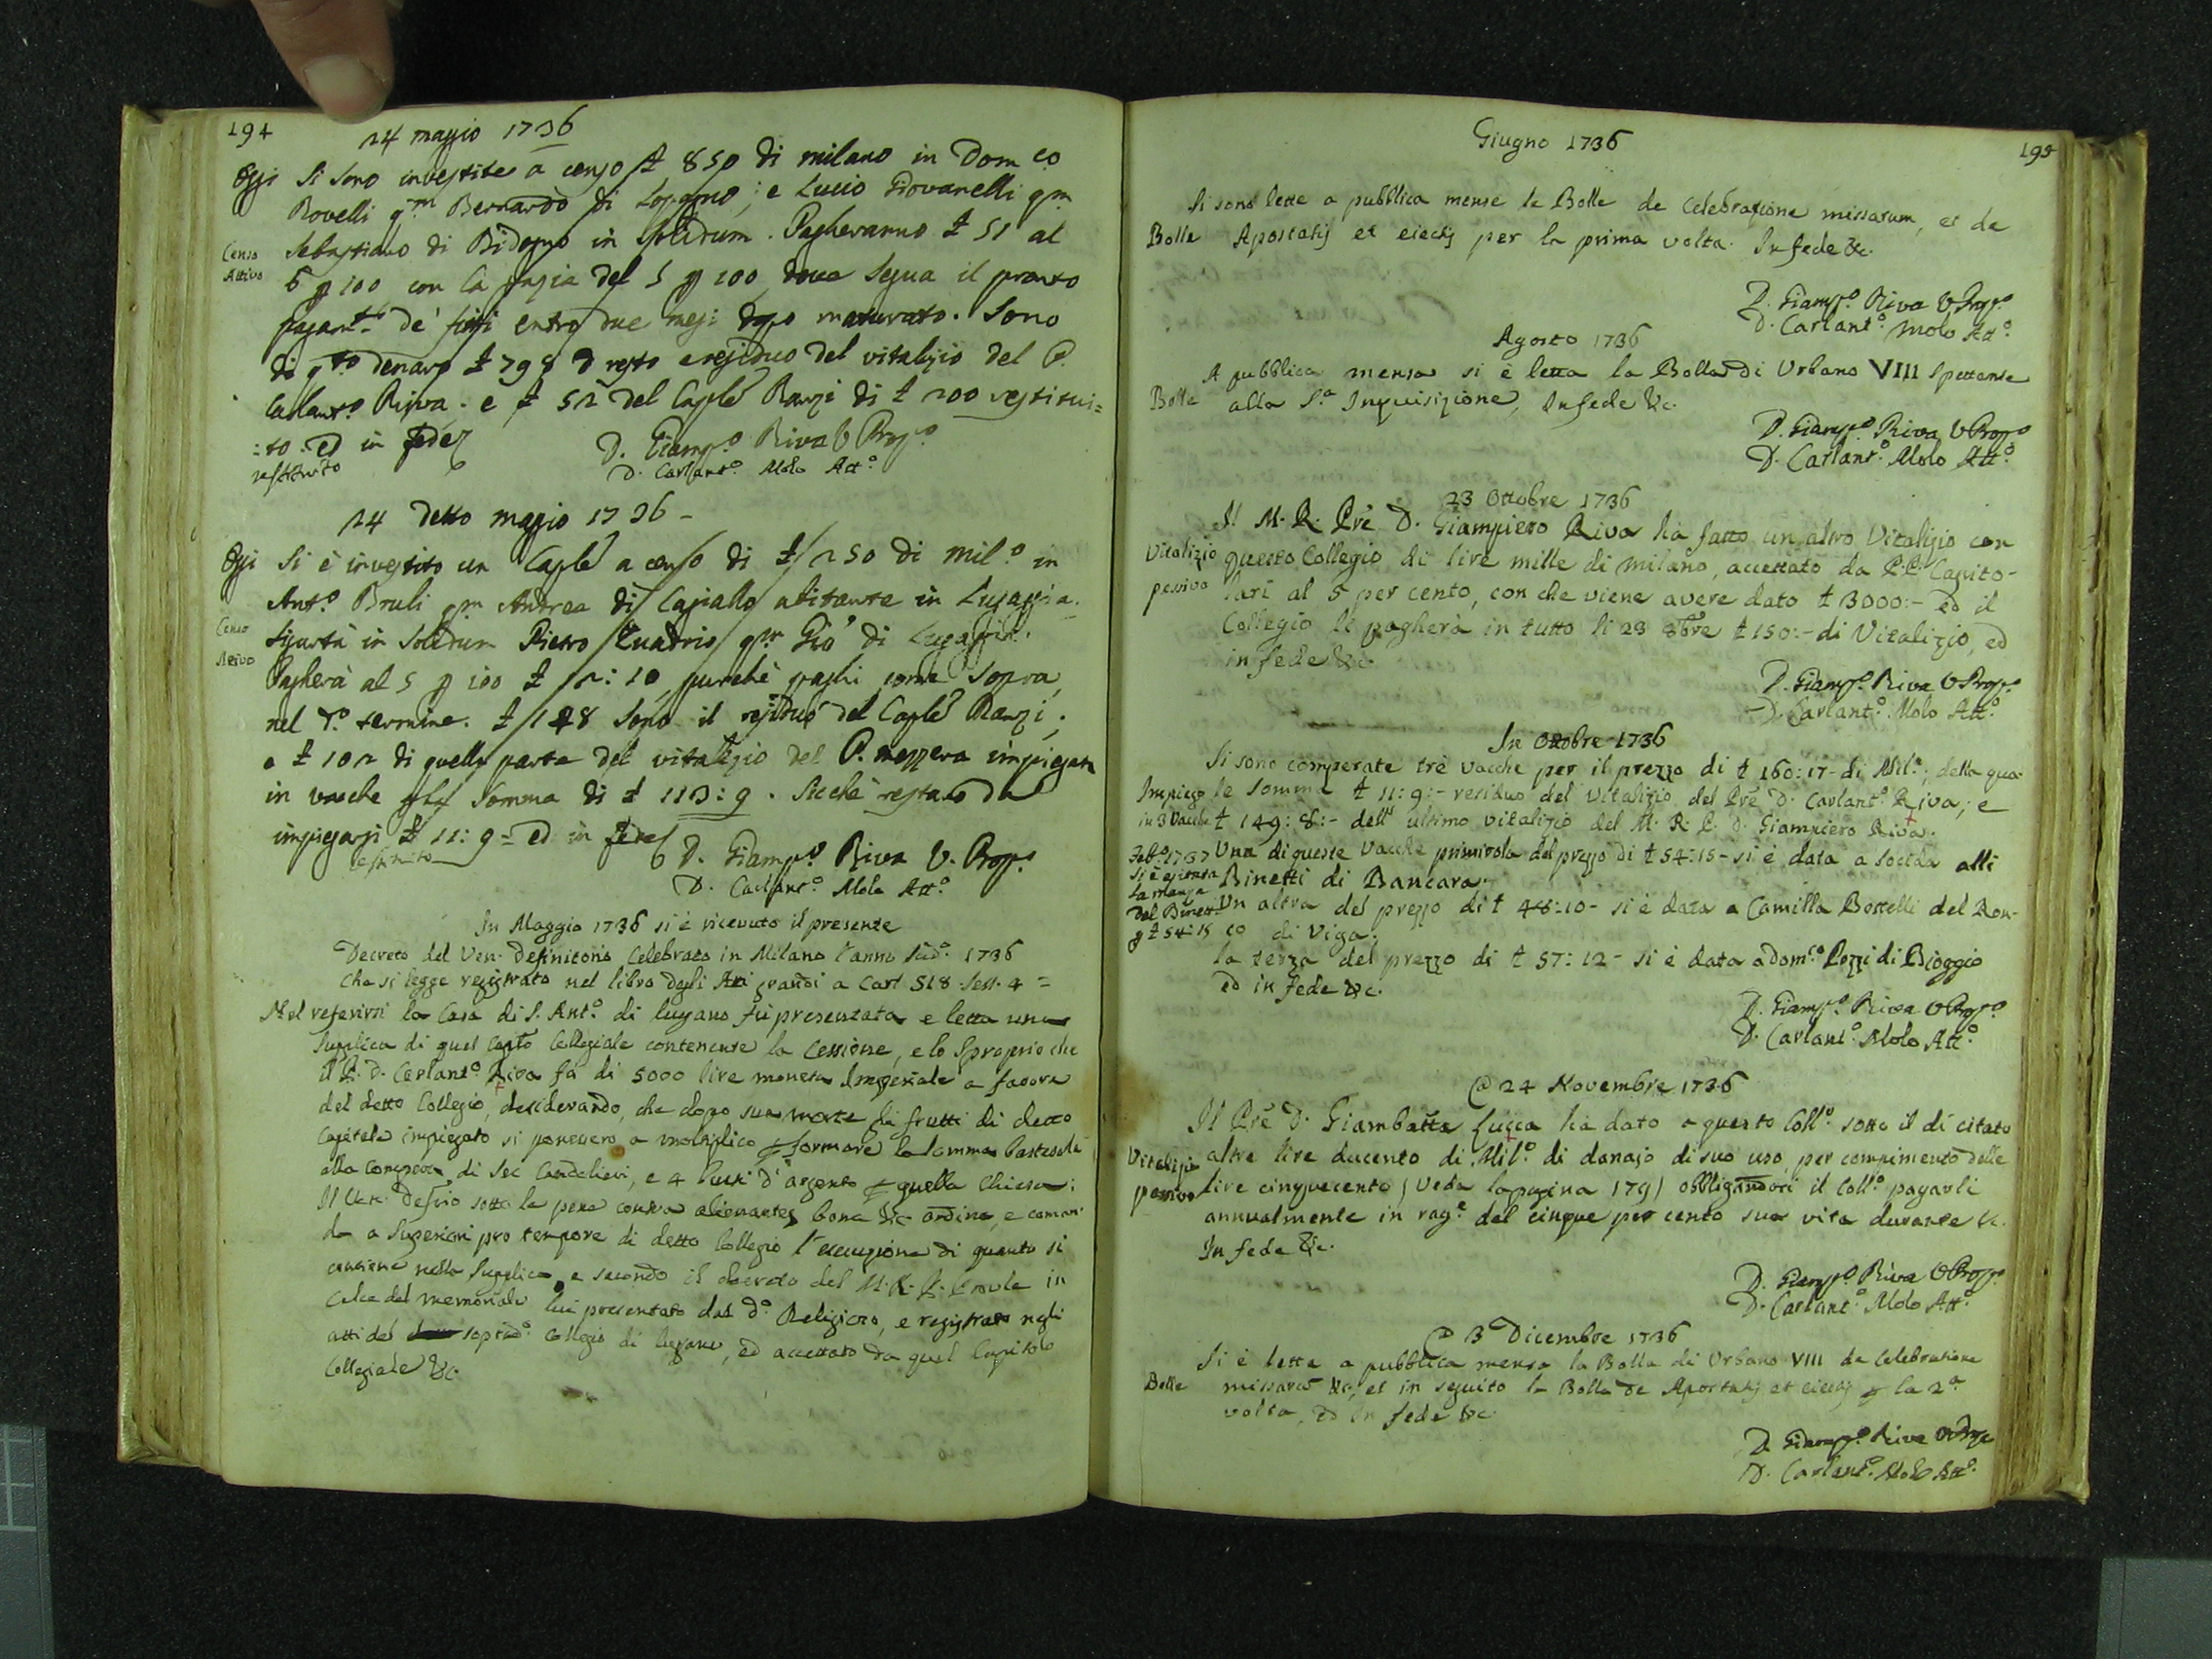 194
24 maggio 1736
Oggi Si sono investite a censo £ 850 di milano in Dom.co
Rovelli q.m Bernardo di Lopagno; e Lucio Giovanelli q.m
Sebastiano di Bidogno in solidum. Pagheranno £ 51 al
Censo
Attivo
6 p 100 con la grazia del 5 p 100, dove segua il pronto
pagam.to de' fitti entro due mesi dopo maturato. Sono
di q.to denaro £ 798 resto e residuo del vitalizio del P.
Carlant.o Riva. e £ 52 del Caple Ranzi di £ 200 restitui=
:to. ed in fede
restituito
D. Giamp.o Riva V Prop.o
D. Carlant.o Molo Att.o
24 detto maggio 1736 -
Oggi Si è investito un Caple a censo di £ 250 di mil.o in
Ant.o Bruli q.m Andrea di abitante in
Censo
Attivo
Sigurtà in solidum Pietro Quadrio q.m Gio' di
Pagherà al 5 p 100 £ 12:10, purchè paghi come sopra,
nel d.o termine. £ 148 sono il residuo del Caple Ranzi,
e £ 102 di quella parte del vitalizio del P. mezzera impiegata
in vacche somma di £ 113:9. Sicchè restano da
impiegarsi £ 11:9 = ed in fede
estinto
D. Giamp.o Riva V. Prop.o
D. Carlant.o Molo Att.o
In Maggio 1736 si è ricevuto il presente
Decreto del Ven. Definitorio Celebrato in Milano l'anno sud.o 1736
che si legge registrato nel libro degli Atti grandi a Cart 518. Sess. 4 =
Nel referirsi la Casa di S. Ant.o di lugano fù presentata e letta una
supplica di quel Caplo Collegiale contenente la Cessione, e lo Sproprio che
il P. D. Carlant.o Riva fà di 5000 lire moneta Imperiale a favore
del detto Collegio, desiderando, che dopo sua morte li frutti di detto
Capitale impiegato si ponessero a moltiplico p formare la somma bastevole
alla Compera di sei Candelieri, e 4 Vasi d'argento p quella Chiesa:
Il Ven. Defirio sotto le pene contra alienantes bona &c ordina, e coman-
da a Superiori pro tempore di detto Collegio l'esecuzione di quanto si
contiene nella supplica, e secondo il decreto del M. R. P. in
calce del memoriale lui presentato dal d.o Religioso, e registrato negli
atti del soprad.o Collegio di lugano, ed accettato da quel Capitolo
Collegiale &c.
195
Giugno 1736
Si sono lette a pubblica mensa le Bolle de Celebratione missarum, et de
Bolle Apostatis et eiectis per la prima volta. In fede &c.
D. Giamp.o Riva V Prop.o
D. Carlant.o Molo Att.o
Agosto 1736
A pubblica mensa si è letta la Bolla di Urbano VIII spettante
Bolle alla S.a Inquisizione, In fede &c.
D. Giamp.o Riva V Prop.o
D. Carlant.o Molo Att.o
23 Ottobre 1736
Il M. R. Pre D. Giampiero Riva hà fatto un altro Vitalizio con
Vitalizio questo Collegio di lire mille di milano, accettato da P.P. Capito-
passivo lari al 5 per cento, con che viene avere dato £ 3000:- ed il
Collegio le pagherà in tutto li 23 8bre £ 150:- di Vitalizio, ed
in fede &c.
D. Giamp.o Riva V Prop.o
D. Carlant.o Molo Att.o
In Ottobre 1736
Si sono comperate trè vacche per il prezzo di £ 160:17- di Mil.o; della qua-
Impiego le somma £ 11:9:- residuo del Vitalizio del Pre D. Carlant.o Riva; e
in 3 Vacche £ 149:8:- dell' ultimo vitalizio del M. R. P. D. Giampiero Riva.
Feb.o 1737 Una di queste Vacche primirola del prezzo di £ 54:15- si è data a socida alli
si è estinta
la
del Binetti
p £ 54:15
Binetti di Bancara.
Un altra del prezzo di £ 48:10- si è data a Camilla Bottelli del Ron-
co di Viga.
la terza del prezzo di £ 57:12- si è data a Dom.co Pozzi di Bioggio
ed in fede &c.
D. Giamp.o Riva V Prop.o
D. Carlant.o Molo Att.o
@ 24 Novembre 1736
Il Pre D. Giambatta Lucca hà dato a questo Coll.o sotto il dì citato
Vitalizio altre lire ducento di Mil.o di danajo di suo uso, per compimento delle
passivo lire cinquecento (Veda la pagina 179) obbligandosi il Coll.o pagarli
annualmente in rag.e del cinque per cento sua vita durante &c.
In fede &c.
D. Giamp.o Riva V Prop.o
D. Carlant.o Molo Att.o
@ 3 Dicembre 1736
Si è letta a pubblica mensa la Bolla di Urbano VIII de Celebratione
Bolle missarum &c, et in seguito la Bolla de Apostatis et eiectis p la 2.a
volta, ed in fede &c.
D. Giamp.o Riva V Prop.o
D. Carlant.o Molo Att.o